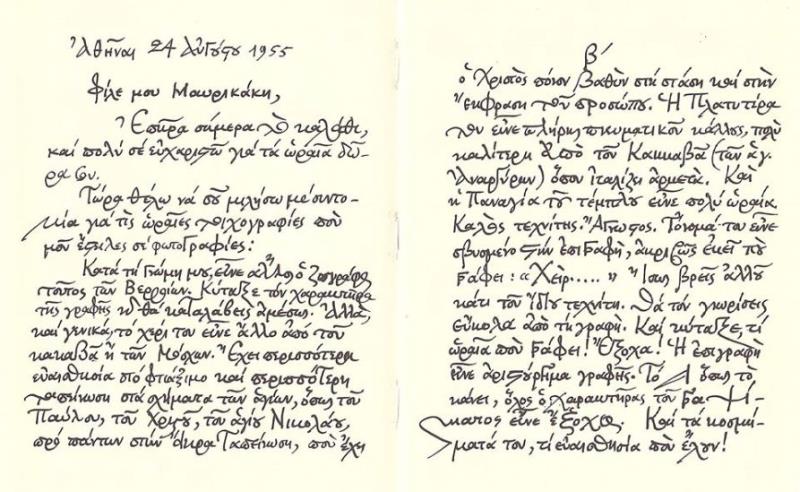 Ἀθῆναι 24 Αὐγούστου 1955
Φίλε μου Μαυρικάκη,
Ἐπῆρα σήμερα τὸ καλάθι,
καὶ πολὺ σὲ εὐχαριστῶ γιὰ τὰ ὡραῖα δῶ-
ρα σου.
Τώρα θέλω νὰ σοῦ μιλήσω μὲ συντο-
μία γιὰ τὶς ὡραῖες τοιχογραφίες ποὺ
μοῦ ἔστειλες σὲ φωτογραφίες:
Κατὰ τὴ γνώμη μου, εἶνε ἄλλος ὁ ζωγράφος
τοῦτος τῶν Βερροίων. Κύταξε τὸν χαρακτῆρα
τῆς γραφῆς κ᾽ θὰ καταλάβεις ἀμέσως. Ἀλλὰ,
καὶ γενικὰ, τὸ χέρι του εἶνε ἄλλο ἀπὸ τοῦ
κακαβᾶ ἢ τῶν Μόσχων. Ἔχει περισσότερη
εὐαισθησία στὸ φτιάξιμο καὶ περισσότερη
ταπείνωση στὰ σχήματα τῶν ἁγίων, ὅπως τοῦ
Παύλου, τοῦ Χριστοῦ, τοῦ ἁγίου Νικολάου,
πρὸ πάντων στὴν Ἄκρα Ταπείνωση, ποὺ ἔχει
β´
ὁ Χριστὸς πόνον βαθὺν στὴ στάση καὶ στὴν
ἔκφραση τοῦ προσώπου. Ἡ Πλατυτέρα
του εἶνε πλήρης πνευματικοῦ κάλλους, πολὺ
καλίτερη ἀπὸ τοῦ Κακαβᾶ (τῶν ἁγ.
Ἀναργύρων) ὅπου ἰταλίζει ἀρκετά. Καὶ
ἡ Παναγία τοῦ τέμπλου εἶνε πολὺ ὡραία.
Καλὸς τεχνίτης. Ἄγνωστος. Τὄνομά του εἶνε
σβυσμένο στὴν ἐπιγραφὴ, ἀκριβῶς ἐκεῖ ποὺ
γράφει: «Χεὶρ.....» Ἴσως βρεῖς ἀλλοῦ
κάτι τοῦ ἴδιου τεχνίτη. Θὰ τὸν γνωρίσεις
εὔκολα ἀπὸ τὴ γραφή. Καὶ κύταξε, τί
ὡραῖα ποὺ γράφει! Ἔξοχα! Ἡ ἐπιγραφὴ
εἶνε ἀριστούργημα γραφῆς. Τὸ Δ ὅπως τὸ
κάνει, ὅλος ὁ χαρακτῆρας τοῦ γραψί-
ματος εἶνε ἔξοχος. Καὶ τὰ κοσμή-
ματά του, τί εὐαισθησία ποὺ ἔχουν!